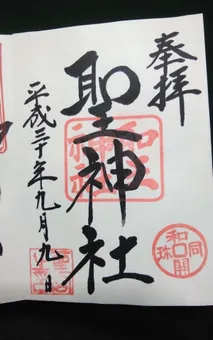 奉拝
聖神社
平成三十年九月九日
和同開珎